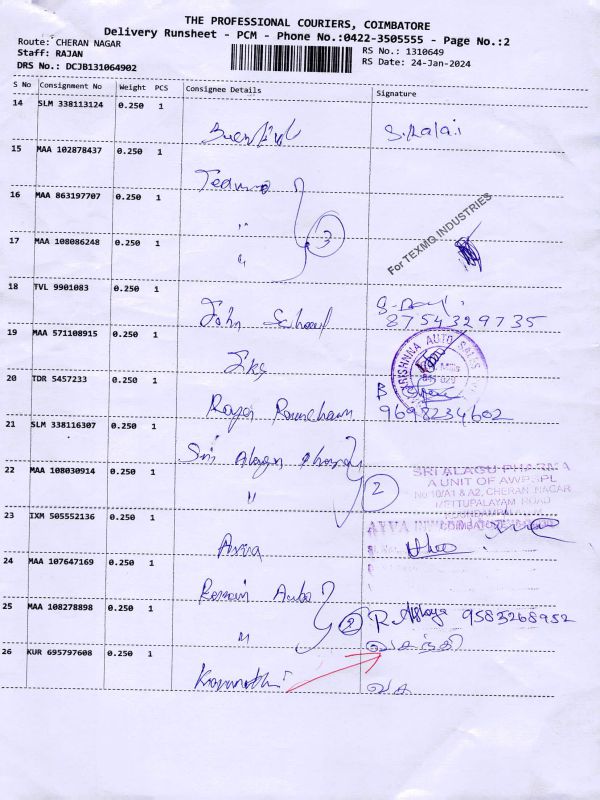 THE PROFESSIONAL COURIERS, COIMBATORE
Delivery Runsheet - PCM - Phone No.:0422-3505555 - Page No.:2
Route: CHERAN NAGAR
Staff: RAJAN
DRS No.: DCJB131064902
RS No.: 1310649
RS Date: 24-Jan-2024
S No Consignment No Weight PCS Consignee Details Signature
14 SLM 338113124 0.250 1
S.Kalai
15 MAA 102878437 0.250 1
16 MAA 863197707 0.250 1
"
3
For TEXMO INDUSTRIES
17 MAA 108086248 0.250 1
"
18 TVL 9901083 0.250 1
John School
8754329735
19 MAA 571108915 0.250 1
KRISHNNA AUTO
20 TDR 5457233 0.250 1
9698234602
21 SLM 338116307 0.250 1
Sri Alagu
22 MAA 108030914 0.250 1
"
2
SRI ALAGU PHARMA
A UNIT OF AWPSPL
No 10/A1 & A2, CHERAN NAGAR
METTUPALAYAM ROAD
COIMBATORE
23 IXM 505552136 0.250 1
24 MAA 107647169 0.250 1
25 MAA 108278898 0.250 1
"
2
R. Akshaya 9583268952
26 KUR 695797608 0.250 1
வசந்தி